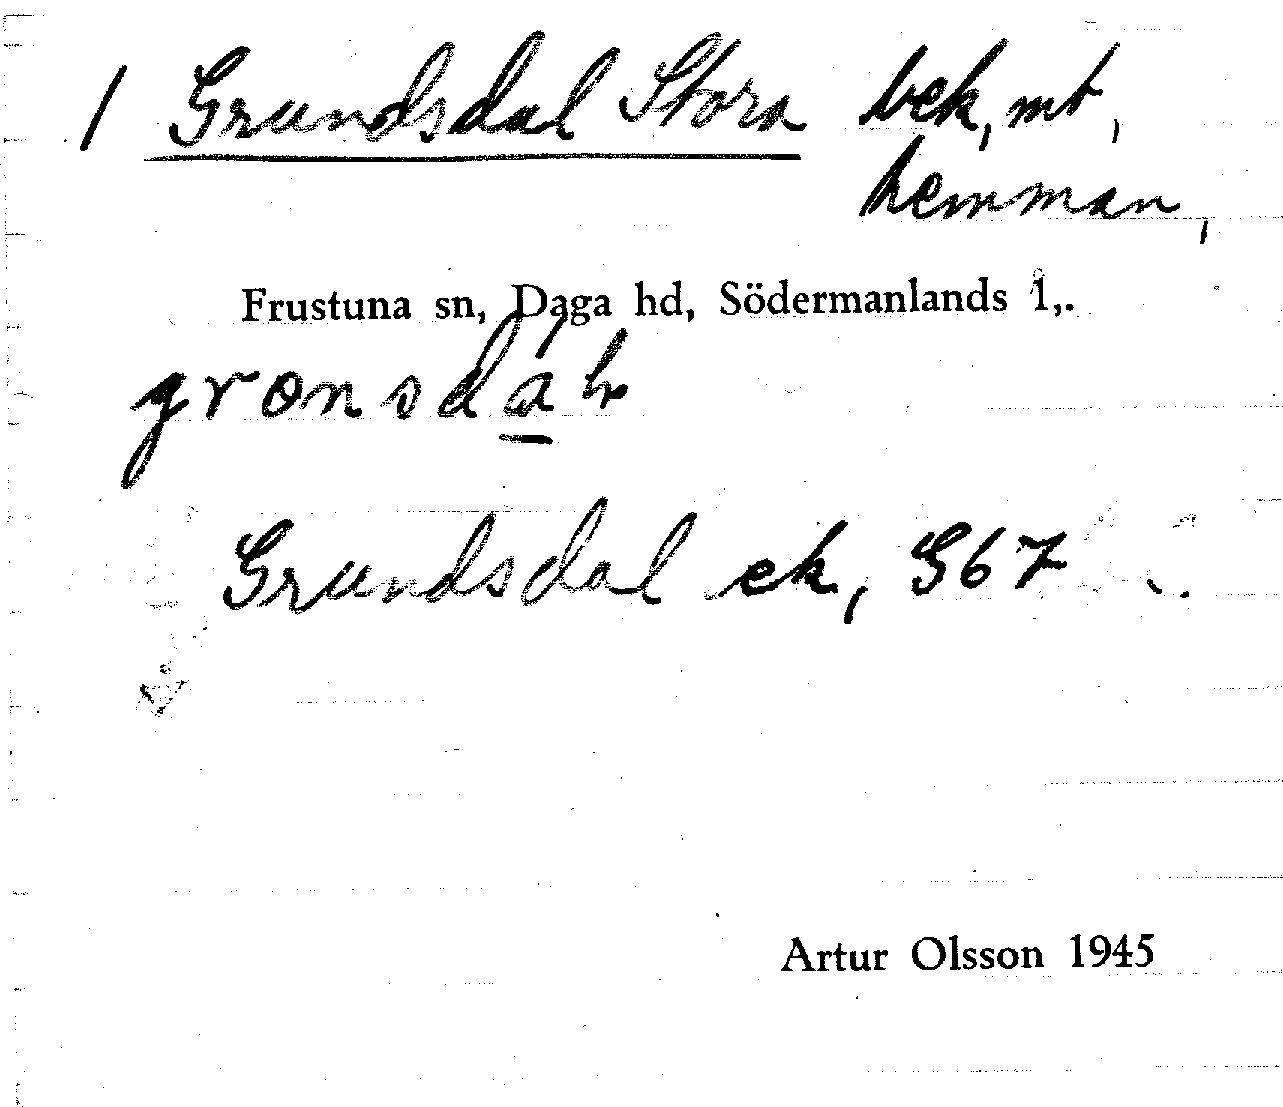 / Grundsdal Stora bek, mt,
hemman,
Frustuna sn, Daga hd, Södermanlands l,.
Grundsdal ek, G67
Artur Olsson 1945